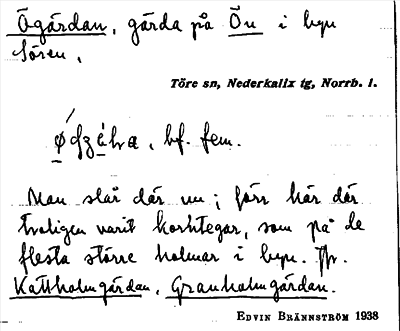 Ögärdan, gärda på Ön i byn
Sören.
Töre sn, Nederkalix tg, Norrb. l.
bf. fem.
Man slår där nu; förr har där
troligen varit korntegar, som på de
flesta större holmar i byn. Jfr.
Kattholmgärdan, Granholmgärdan.
EDVIN BRÄNNSTRÖM 1938